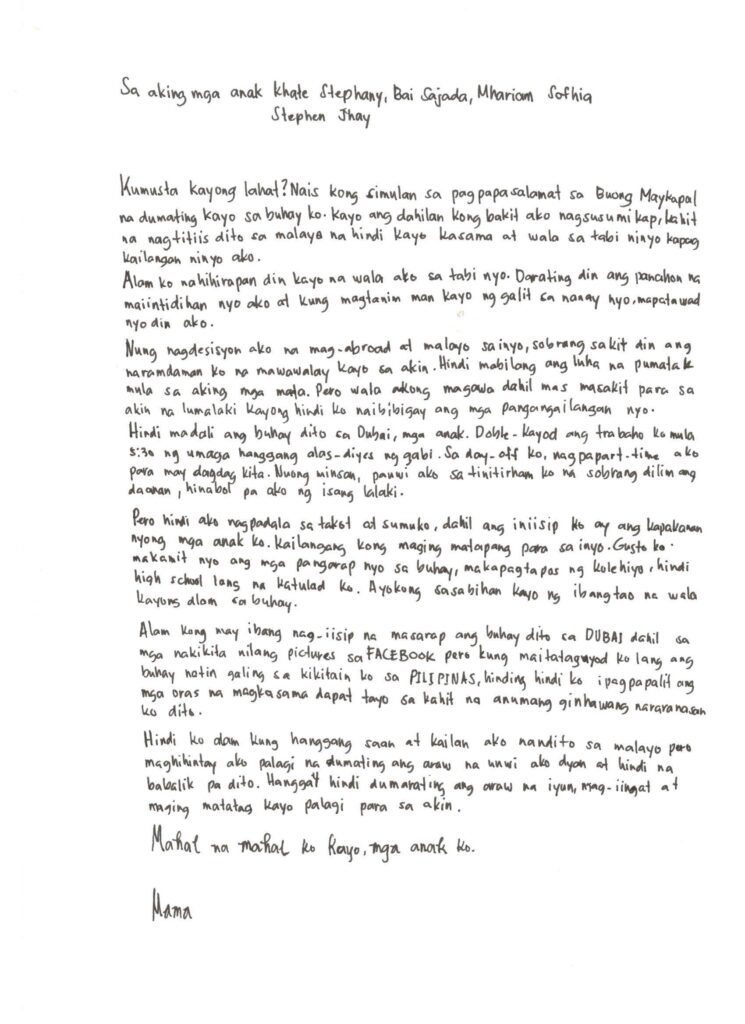 Sa aking mga anak Khate Stephany, Bai Sajada, Mhariam Sofhia
Stephen Jhay
Kumusta kayong lahat? Nais kong simulan sa pagpapasalamat sa Buong Maykapal
na dumating kayo sa buhay ko. Kayo ang dahilan kong bakit ako nagsusumikap, kahit
na nagtitiis dito sa malayo na hindi kayo kasama at wala sa tabi ninyo kapag
kailangan ninyo ako.
Alam ko nahihirapan din kayo na wala ako sa tabi nyo. Darating din ang panahon na
maiintidihan nyo ako at kung magtanim man kayo ng galit sa nanay nyo, mapatawad
nyo din ako.
Nung nagdesisyon ako na mag-abroad at malayo sa inyo, sobrang sakit din ang
naramdaman ko na mawawalay kayo sa akin. Hindi mabilang ang luha na pumatak
mula sa aking mga mata. Pero wala akong magawa dahil mas masakit para sa
akin na lumalaki kayong hindi ko naibibigay ang mga pangangailangan nyo.
Hindi madali ang buhay dito sa Dubai, mga anak. Doble-kayod ang trabaho ko mula
5:30 ng umaga hanggang alas-diyes ng gabi. Sa day-off ko, nagpapart-time ako
para may dagdag kita. Nuong minsan, pauwi ako sa tinitirham ko na sobrang dilim ang
daanan, hinabol pa ako ng isang lalaki.
Pero hindi ako nagpadala sa takot at sumuko, dahil ang iniisip ko ay ang kapakanan
nyong mga anak ko. Kailangang kong maging matapang para sa inyo. Gusto ko
makamit nyo ang mga pangarap nyo sa buhay, makapagtapos ng kolehiyo, hindi
high school lang na katulad ko. Ayokong sasabihan kayo ng ibang tao na wala
kayong alam sa buhay.
Alam kong may ibang nag-iisip na masarap ang buhay dito sa DUBAI dahil sa
mga nakikita nilang pictures sa FACEBOOK pero kung maitataguyod ko lang ang
buhay natin galing sa kikitain ko sa PILIPINAS, hinding hindi ko ipagpapalit ang
mga oras na magkasama dapat tayo sa kahit na anumang ginhawang nararanasan
ko dito.
Hindi ko alam kung hanggang saan at kailan ako nandito sa malayo pero
maghihintay ako palagi na dumating ang araw na uuwi ako dyan at hindi na
babalik pa dito. Hangga't hindi dumarating ang araw na iyun, mag-iingat at
maging matatag kayo palagi para sa akin.
Mahal na mahal ko kayo, mga anak ko.
Mama